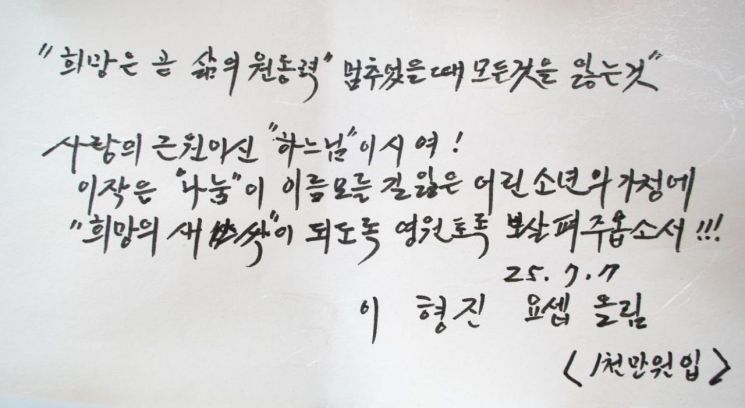 "희망은 곧 삶의 원동력" 멈추었을때 모든것을 잃는것"
사랑의 근원이신 "하느님"이시여!
이작은 "나눔"이 이름모를 길잃은 어린소년의가정에
"희망의 새싹"이 되도록 영원토록 보살펴주옵소서!!!
25.7.7
이 형진 요셉 올림
<1천만원입>